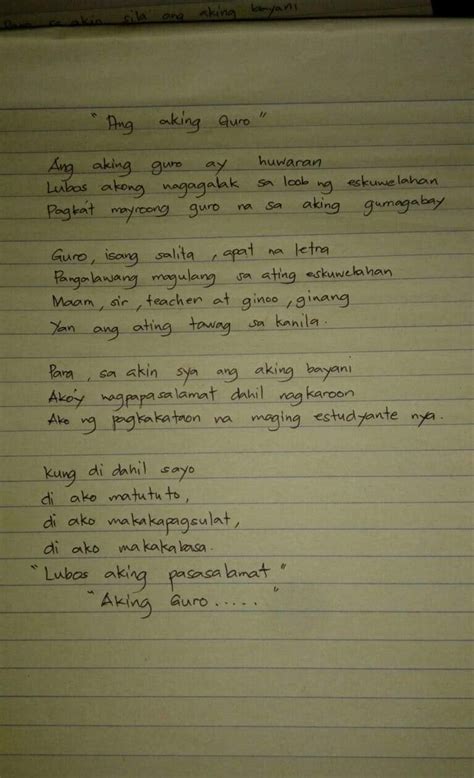 Para sa akin sila ang aking bayani
"Ang aking Guro"
Ang aking guro ay huwaran
Lubos akong nagagalak sa loob ng eskuwelahan
Pagkat mayroong guro na sa aking gumagabay
Guro, isang salita, apat na letra
Pangalawang magulang sa ating eskuwelahan
Maam, sir, teacher at ginoo, ginang
Yan ang ating tawag sa kanila.
Para, sa akin sya ang aking bayani
Ako'y nagpapasalamat dahil nagkaroon
Ako ng pagkakataon na maging estudyante nya.
Kung di dahil sayo
di ako matututo,
di ako makakapagsulat,
di ako makakabasa.
"Lubos aking pasasalamat"
"Aking Guro....."